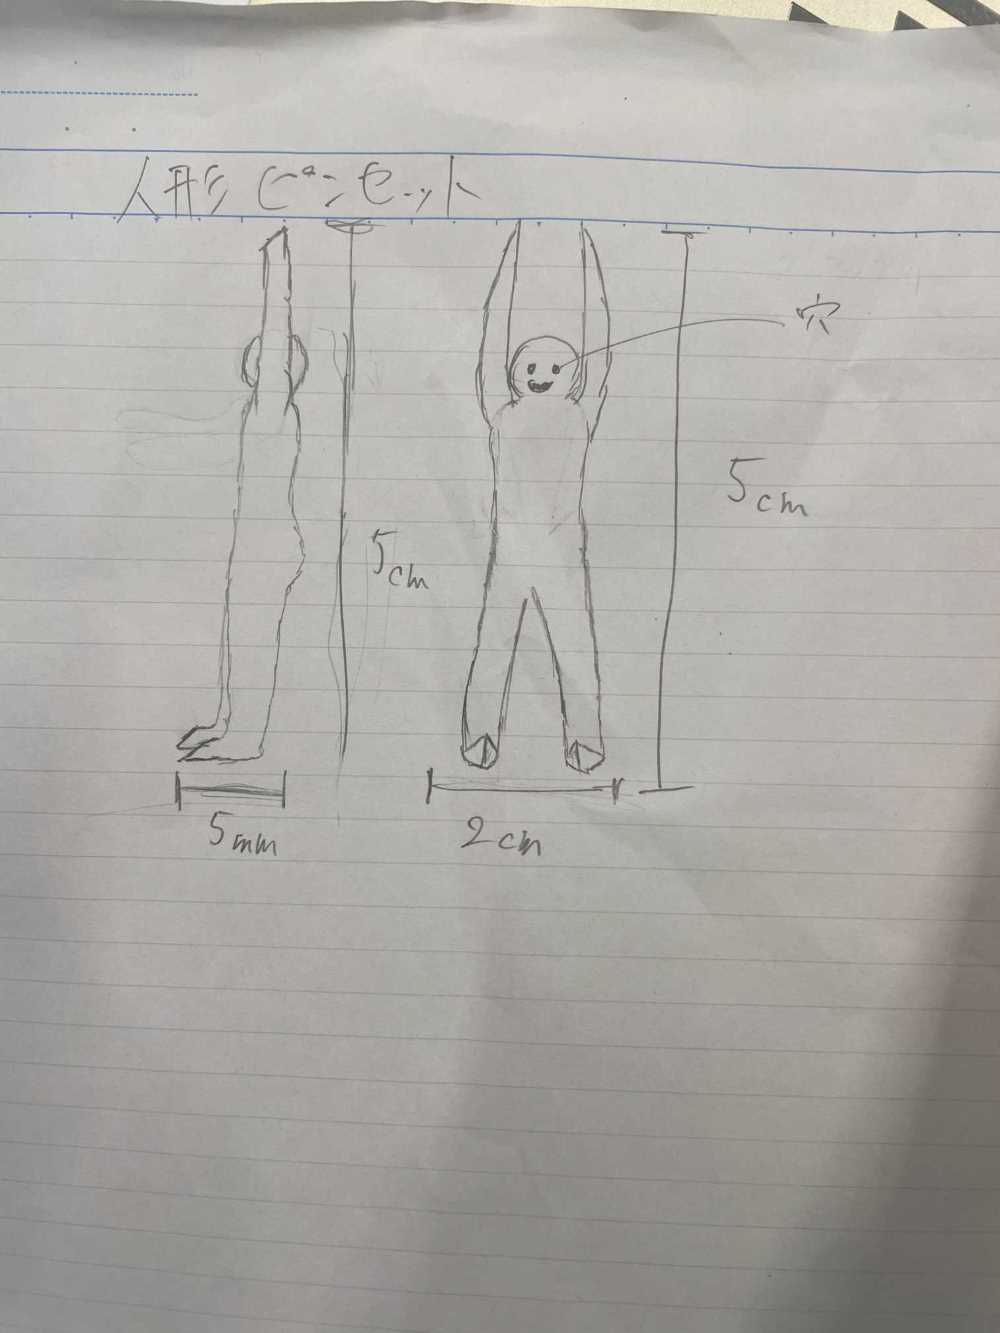 人形ピンセット
穴
5cm
5cm
5mm
2cm